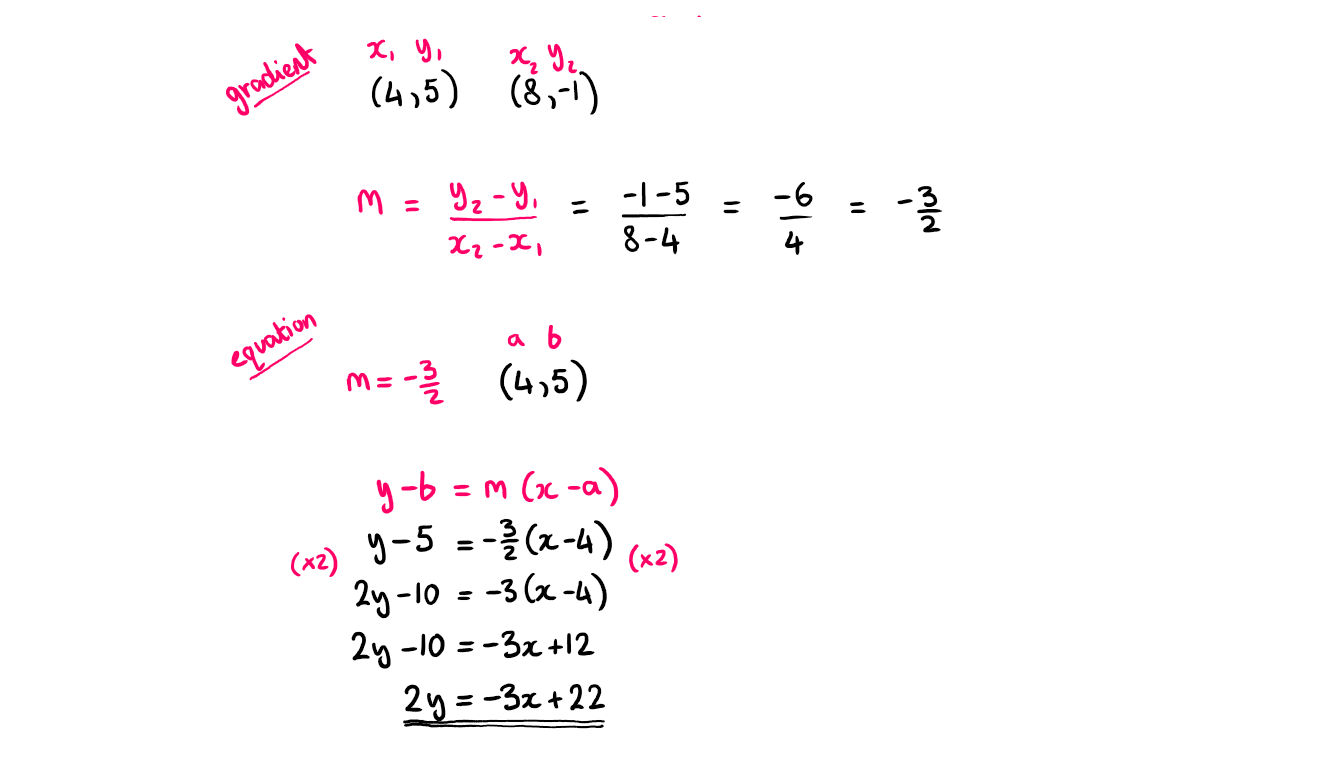 gradient x₁ y₁ x₂ y₂
(4,5) (8,-1)
m = (y₂ - y₁)/(x₂ - x₁) = (-1-5)/(8-4) = -6/4 = -3/2
equation a b
m = -3/2 (4,5)
y - b = m (x - a)
(×2) y - 5 = -3/2 (x - 4) (×2)
2y - 10 = -3 (x - 4)
2y - 10 = -3x + 12
2y = -3x + 22